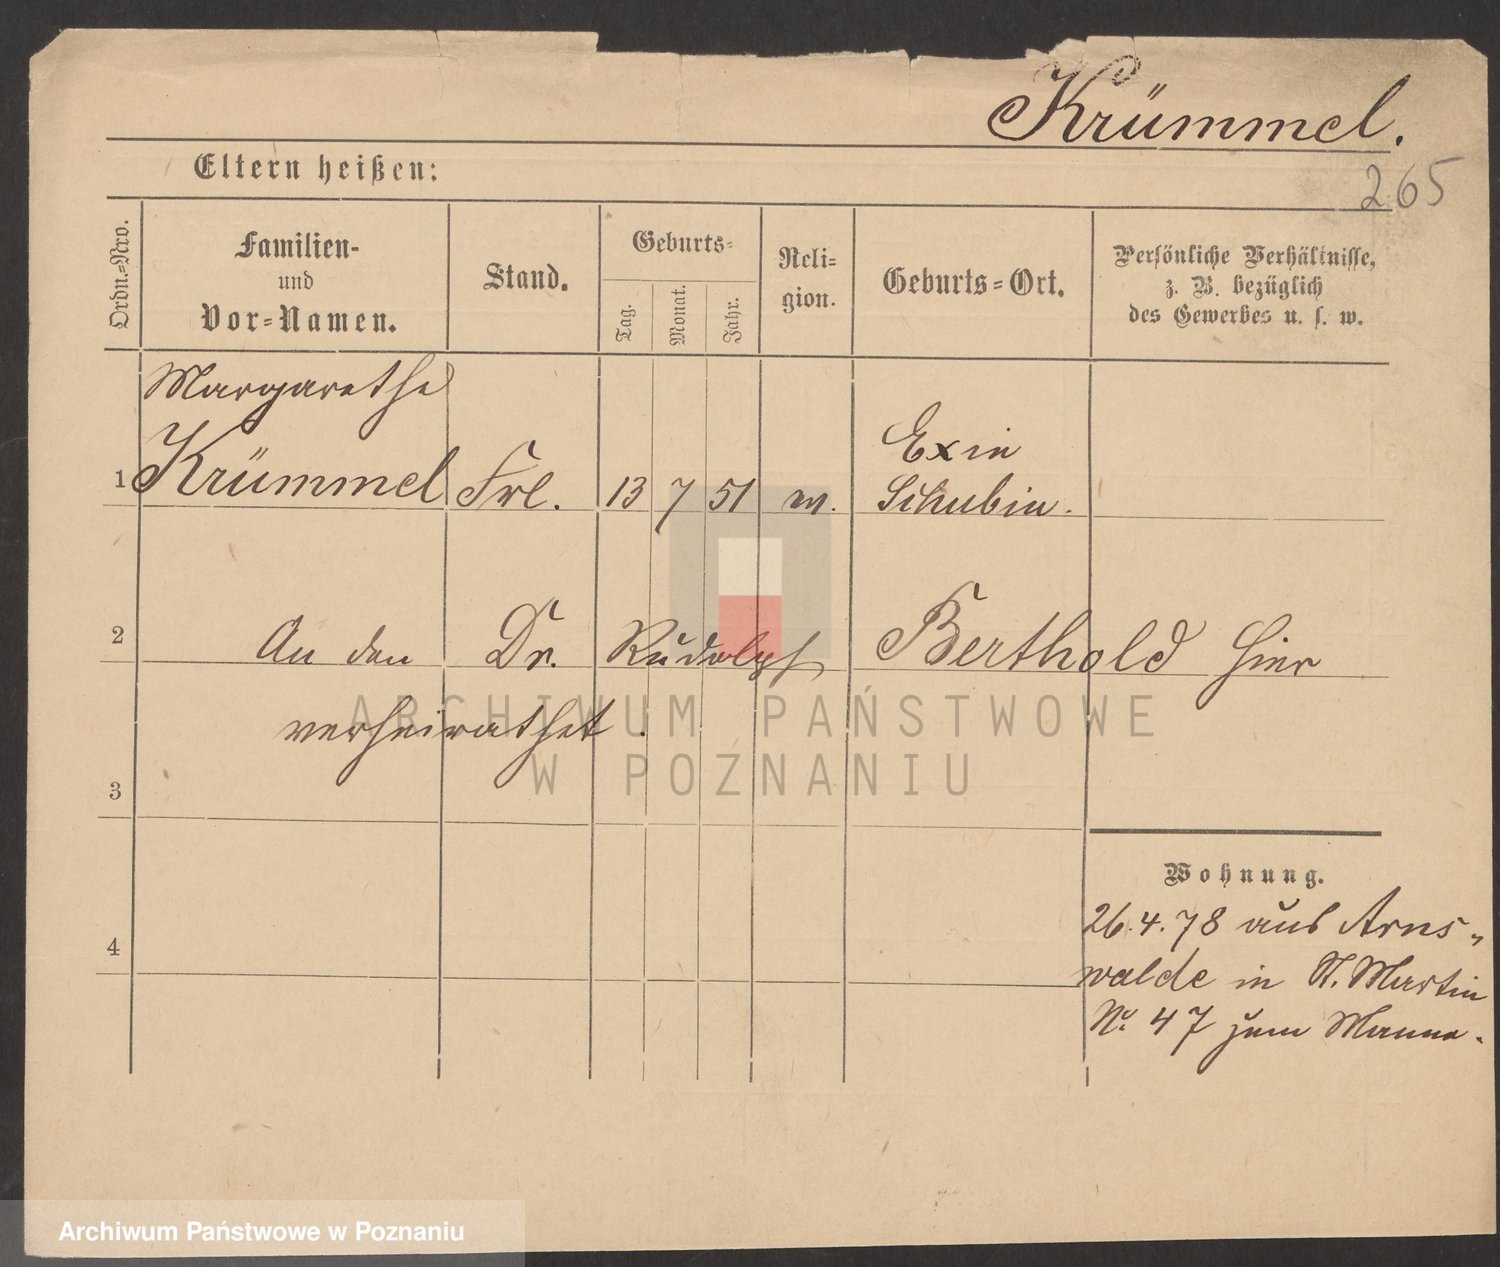 Krümmel.
265
Eltern heißen:
Ordn.=Nro.
Familien-
und
Vor=Namen.
Stand.
Geburts=
Tag.
Monat.
Jahr.
Reli=
gion.
Geburts=Ort.
Persönliche Verhältnisse,
z. B. bezüglich
des Gewerbes u. s. w.
Margarethe
1 Krümmel Frl. 13 7 51 Exin
Schubin.
2 An den Dr. Rudolph Berthold hier
verheirathet.
3
4
Wohnung.
26.4.78 aus Arns-
walde in St. Martin
No. 47 zum Manne.
ARCHIWUM PAŃSTWOWE
W POZNANIU
Archiwum Państwowe w Poznaniu